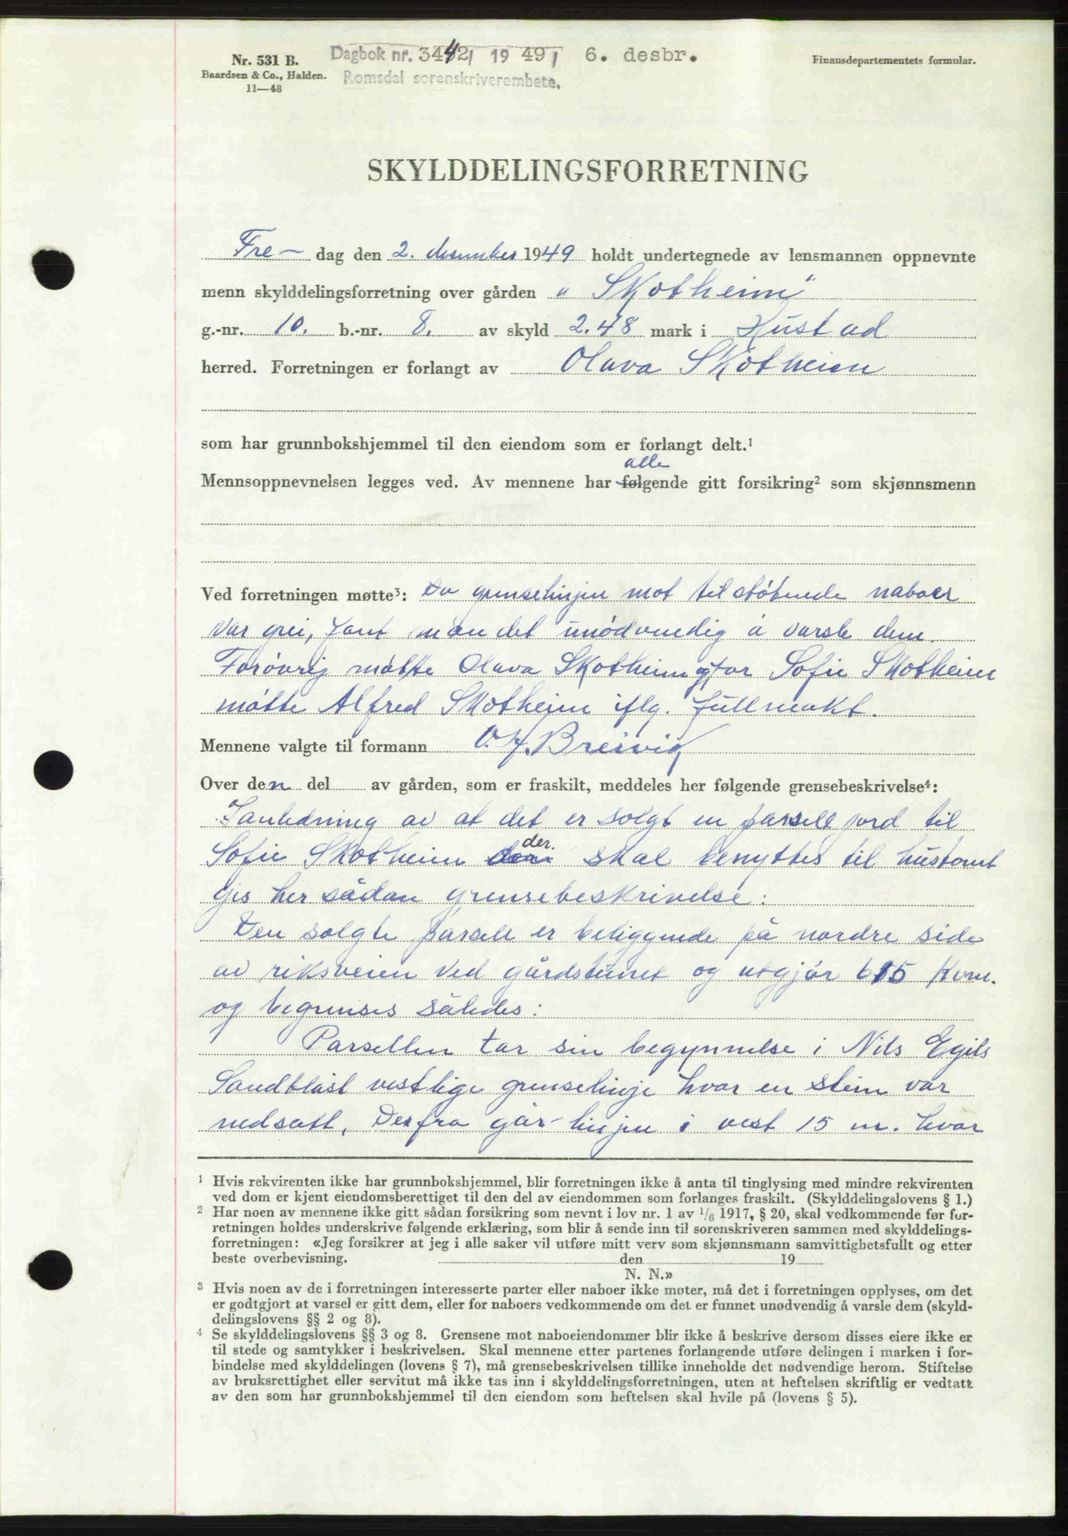 Nr. 531 B.
Baardsen & Co., Halden.
11—48
Dagbok nr. 3442 1949 6. desbr.
Romsdal sorenskriverembete.
Finansdepartementets formular.
SKYLDDELINGSFORRETNING
Fre- dag den 2. desember 1949 holdt undertegnede av lensmannen oppnevnte
menn skylddelingsforretning over gården "Skotheim"
g.-nr. 10. b.-nr. 8. av skyld 2.48 mark i Hustad
herred. Forretningen er forlangt av Olava Skotheim
som har grunnbokshjemmel til den eiendom som er forlangt delt.¹
alle
Mennsoppnevnelsen legges ved. Av mennene har følgende gitt forsikring² som skjønnsmenn
Ved forretningen møtte³: Da grenselinjen mot tilstøtende naboer
var grei, fant man det unødvendig å varsle dem.
Forøvrig møtte Olava Skotheim og for Sofie Skotheim
møtte Alfred Skotheim iflg. fullmakt.
Mennene valgte til formann O. J. Breivig
Over den del av gården, som er fraskilt, meddeles her følgende grensebeskrivelse⁴:
I anledning av at det er solgt en parsell jord til
Sofie Skotheim der skal benyttes til hustomt
gis her sådan grensebeskrivelse:
Den solgte parsell er beliggende på nordre side
av riksveien ved gårdstunet og utgjør 615 kvm.
og begrenses således:
Parsellen tar sin begynnelse i Nils Egils
Sandblåst vestlige grenselinje hvor en stein var
nedsatt. Derfra går linjen i vest 15 m. hvor
¹ Hvis rekvirenten ikke har grunnbokshjemmel, blir forretningen ikke å anta til tinglysing med mindre rekvirenten
ved dom er kjent eiendomsberettiget til den del av eiendommen som forlanges fraskilt. (Skylddelingslovens § 1.)
² Har noen av mennene ikke gitt sådan forsikring som nevnt i lov nr. 1 av 1/6 1917, § 20, skal vedkommende før for-
retningen holdes underskrive følgende erklæring, som blir å sende inn til sorenskriveren sammen med skylddelings-
forretningen: «Jeg forsikrer at jeg i alle saker vil utføre mitt verv som skjønnsmann samvittighetsfullt og etter
beste overbevisning. den 19
N. N.»
³ Hvis noen av de i forretningen interesserte parter eller naboer ikke møter, må det i forretningen opplyses, om det
er godtgjort at varsel er gitt dem, eller for naboers vedkommende om det er funnet unødvendig å varsle dem (skyld-
delingslovens §§ 2 og 8).
⁴ Se skylddelingslovens §§ 3 og 8. Grensene mot naboeiendommer blir ikke å beskrive dersom disses eiere ikke er
til stede og samtykker i beskrivelsen. Skal mennene etter partenes forlangende utføre delingen i marken i for-
bindelse med skylddelingen (lovens § 7), må grensebeskrivelsen tillike inneholde det nødvendige herom. Stiftelse
av bruksrettighet eller servitut må ikke tas inn i skylddelingsforretningen, uten at heftelsen skriftlig er vedtatt
av den som har grunnbokshjemmel til den eiendom som heftelsen skal hvile på (lovens § 5).